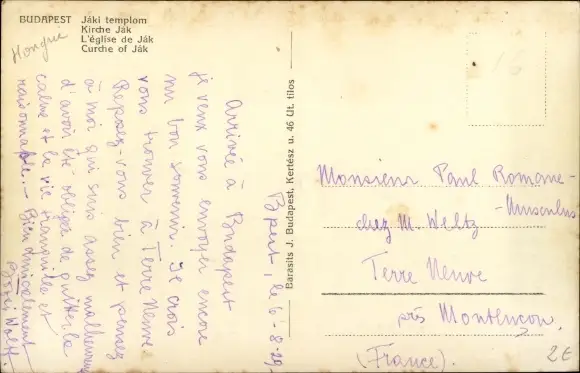 BUDAPEST Jáki templom
Kirche Ják
L'église de Ják
Curche of Ják
Hongrie
Bpest, le 6-8-29.
Arrivée à Budapest
je veux vous envoyer encore
un bon souvenir. Je crois
vous trouver à Terre Neuve
Reposez-vous bien et pensez
à moi qui suis assez malheureuse
d'avoir été obligée de quitter le
calme et la vie tranquille et
raisonnable. - Bien amicalement
Barasits J. Budapest, Kertész u. 46 Ut. tilos
Monsieur Paul Romane-
-Musculus
chez M. Weltz
Terre Neuve
près Montluçon.
(France).
16
2€